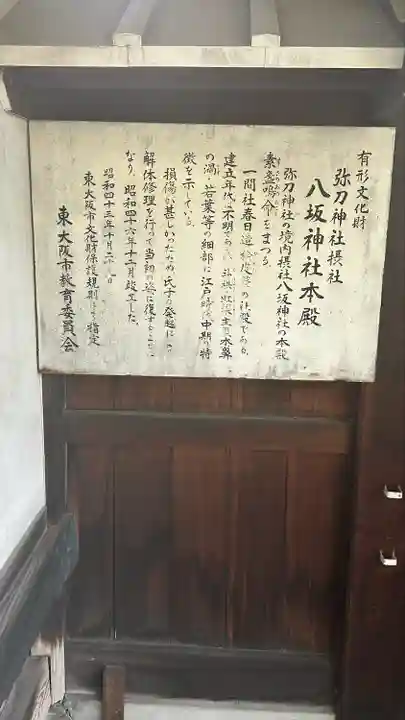 有形文化財
弥刀神社摂社
八坂神社本殿
弥刀神社の境内摂社八坂神社の本殿
素盞嗚命をまつる。
一間社春日造 の社殿である。
建立年代は不明であるが 木鼻
の渦・若葉等の細部に江戸時代中期の特
徴を示している。
損傷が甚しかったため氏子の発起により
解体修理を行って当初の姿に復することに
なり、昭和四十六年十二月竣工した。
昭和四十三年十月二 日
東大阪市文化財保護規則により指定
東大阪市教育委員会